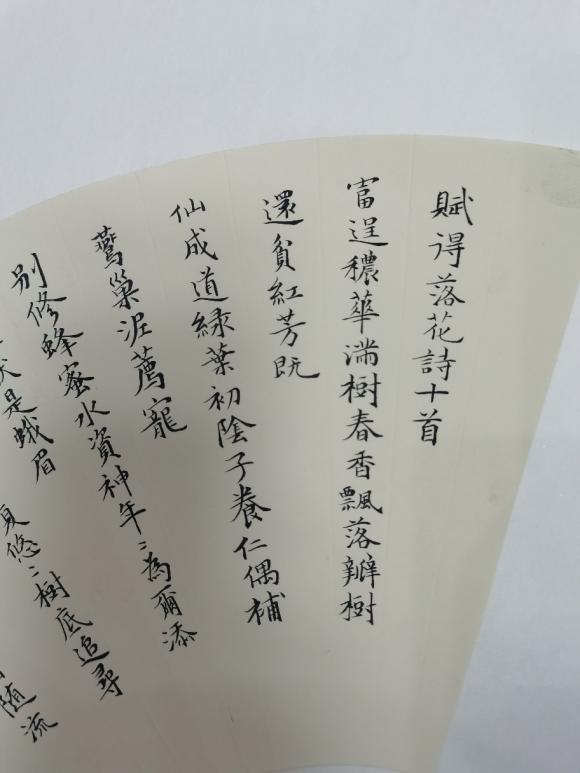 賦得落花詩十首
富逞穠華滿樹春香飄落瓣樹
還貧紅芳既
仙成道綠葉初陰子養仁偶補
鶯巢泥薦寵
別修蜂蜜水資神年〻為爾添
是蛾眉
悠〻樹底追尋
随流